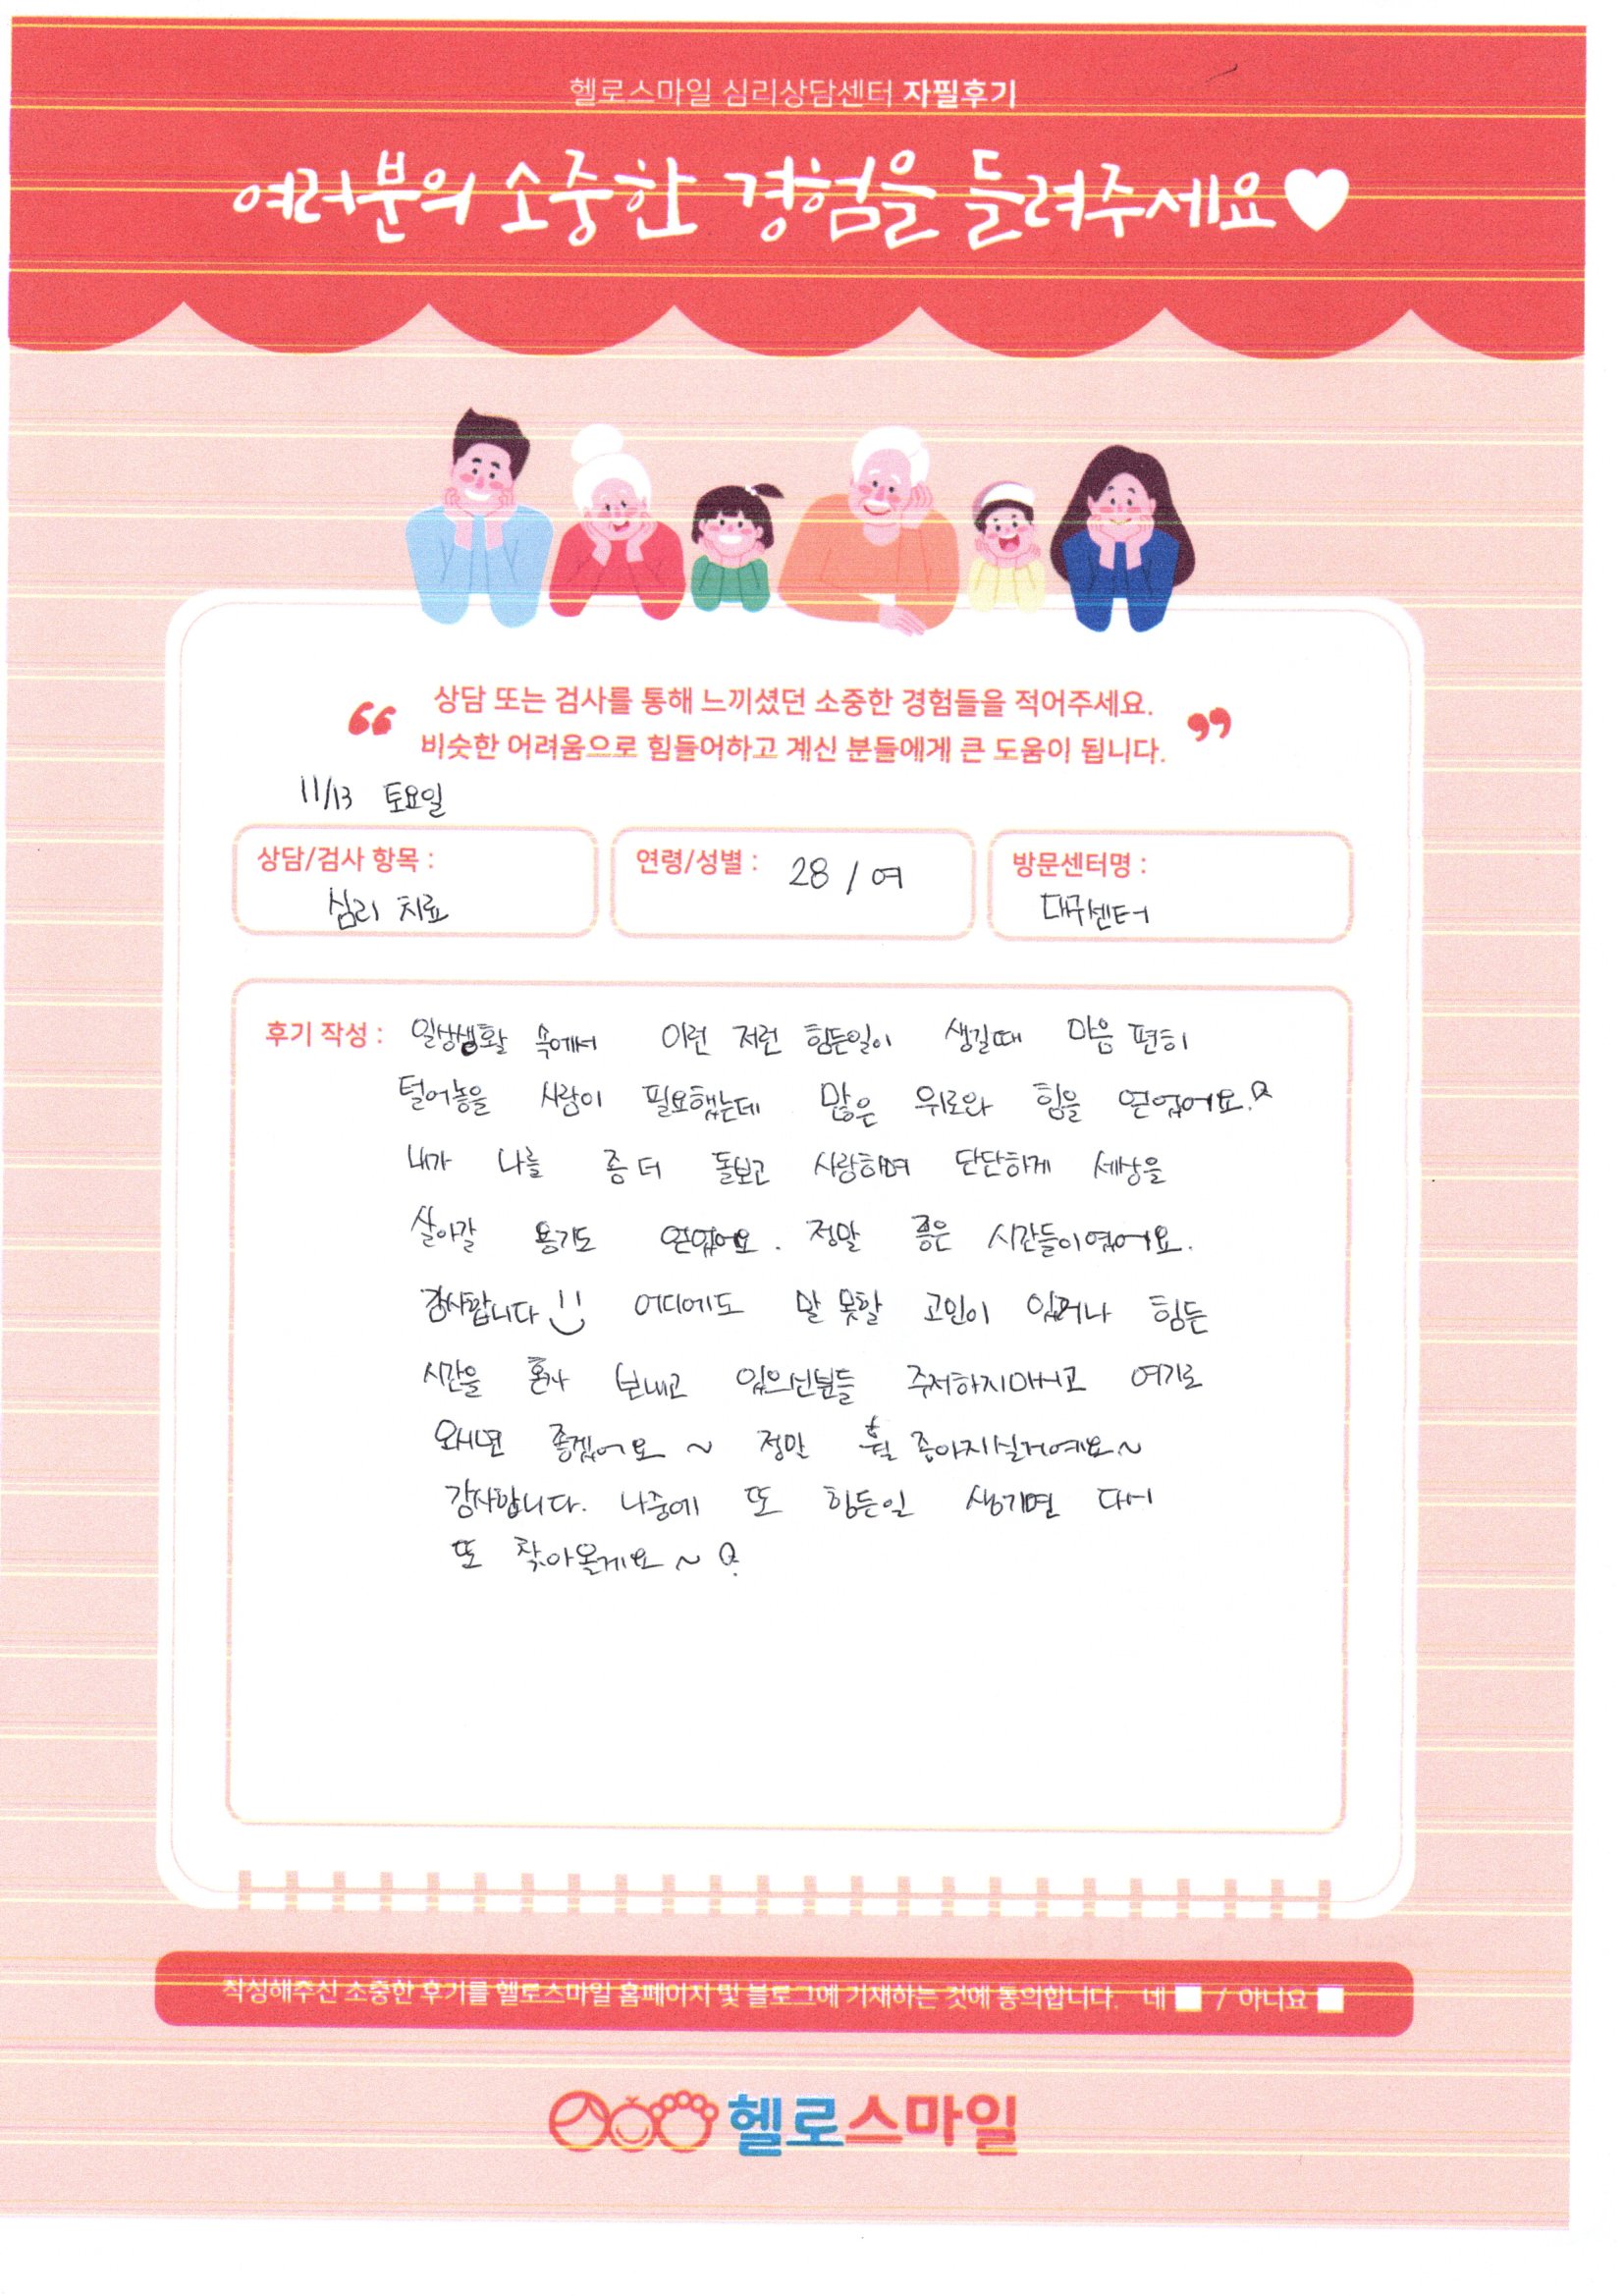 헬로스마일 심리상담센터 자필후기
여러분의 소중한 경험을 들려주세요♥
상담 또는 검사를 통해 느끼셨던 소중한 경험들을 적어주세요.
비슷한 어려움으로 힘들어하고 계신 분들에게 큰 도움이 됩니다.
11/13 토요일
상담/검사 항목 :
심리 치료
연령/성별 : 28 / 여
방문센터명 :
대구센터
후기 작성 : 일상생활 속에서 이런 저런 힘든일이 생길때 마음 편히
털어놓을 사람이 필요했는데 많은 위로와 힘을 얻었어요.
내가 나를 좀 더 돌보고 사랑하며 단단하게 세상을
살아갈 용기도 얻었어요. 정말 좋은 시간들이였어요.
감사합니다 어디에도 말 못할 고민이 있거나 힘든
시간을 혼자 보내고 있으신분들 주저하지마시고 여기로
오시면 좋겠어요 ~ 정말 훨 좋아지실거예요~
감사합니다. 나중에 또 힘든일 생기면 다시
또 찾아올게요 ~
작성해주신 소중한 후기를 헬로스마일 홈페이지 및 블로그에 기재하는 것에 동의합니다. 네 / 아니요
헬로스마일